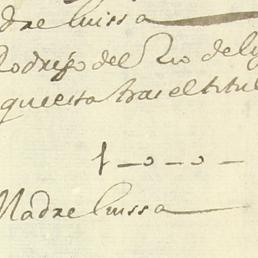 dre luissa
Rodrigo del Rio de
que esta tras el titul
Madre luissa